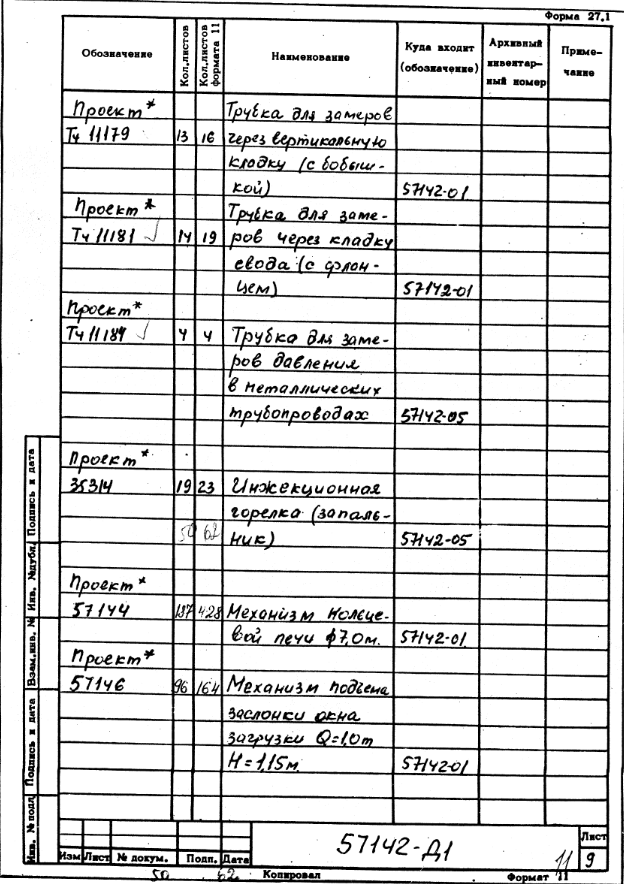 Форма 27.1
Обозначение Кол.листов Кол.листов формата 11 Наименование Куда входит (обозначение) Архивный инвентарный номер Примечание
Проект* Трубка для замеров
Тч 11179 13 16 через вертикальную
кладку (с бобыш-
кой) 57142-01
Проект* Трубка для заме-
Тч 11181 14 19 ров через кладку
свода (с флан-
цем) 57142-01
Проект*
Тч 11184 4 4 Трубка для заме-
ров давления
в металлических
трубопроводах 57142-05
Проект*
35314 19 23 Инжекционная
горелка (запаль-
50 62 ник) 57142-05
Проект*
57144 187 428 Механизм кольце-
вой печи ф7,0м. 57142-01
Проект*
57146 96 164 Механизм подъема
заслонки окна
загрузки Q=1,0т
H=1,15м. 57142-01
Инв. № подл. Подпись и дата Взам.инв. № Инв. №дубл. Подпись и дата
57142-Д1
Лист
9
11
Изм Лист № докум. Подп. Дата
50 62 Копировал Формат 11